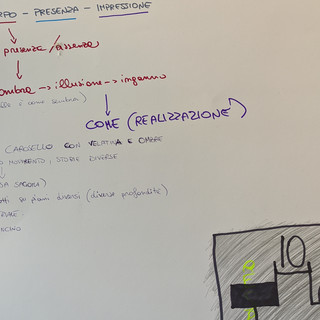 RPO - PRESENZA - IMPRESSIONE
presenza/assenza
ombra → illusione → inganno
COME (REALIZZAZIONE)
CAROSELLO CON VELATINA E OMBRE
MOVIMENTO, STORIE DIVERSE
SA SAGOMA)
su piani diversi (diverse profondità)
10